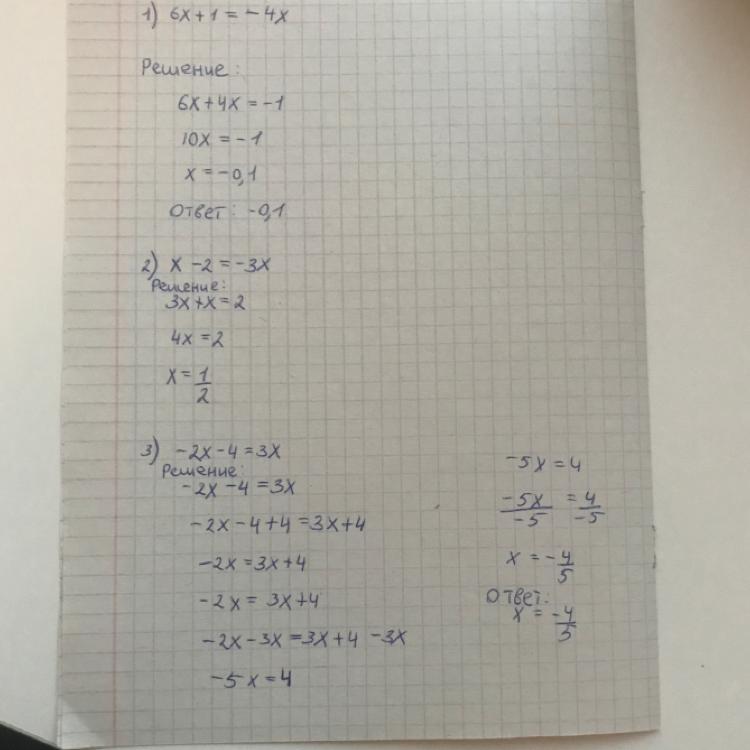 1) 6x+1=-4x
Решение:
6x+4x=-1
10x=-1
x=-0,1
Ответ: -0,1
2) x-2=-3x
Решение:
3x+x=2
4x=2
x=1/2
3) -2x-4=3x
Решение:
-2x-4=3x
-2x-4+4=3x+4
-2x=3x+4
-2x=3x+4
-2x-3x=3x+4-3x
-5x=4
-5x=4
-5x/-5=4/-5
x=-4/5
Ответ:
x=-4/5